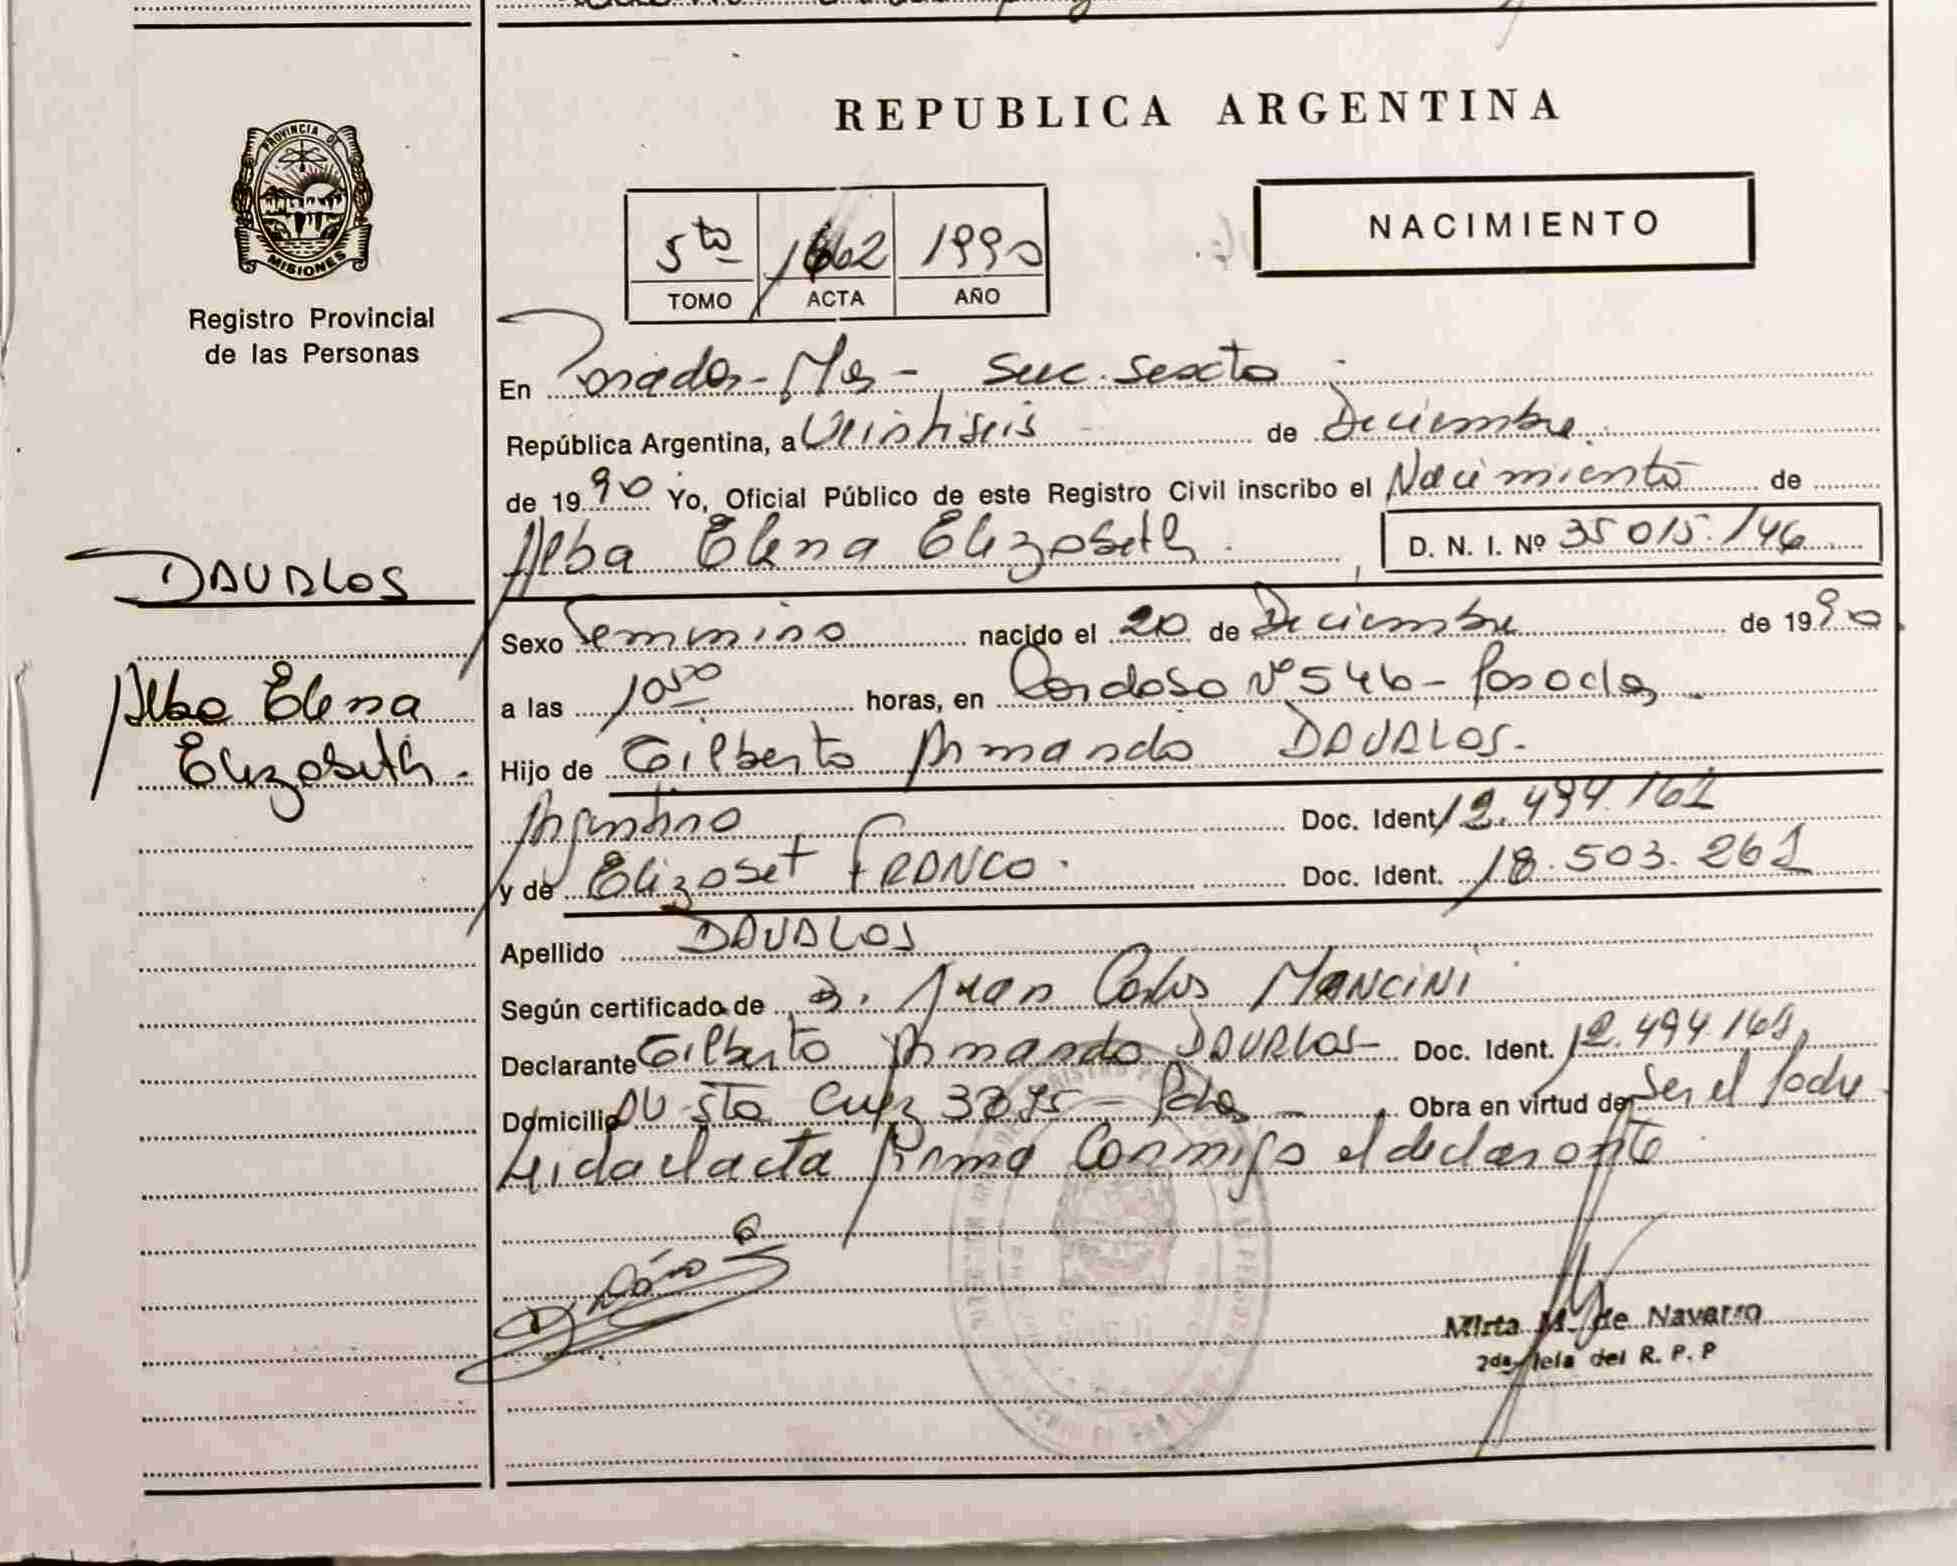 PROVINCIA DE
MISIONES
Registro Provincial
de las Personas
DAVALOS
Alba Elena
Elizabeth.
REPUBLICA ARGENTINA
5to 1662 1990
TOMO ACTA AÑO
NACIMIENTO
En Posadas - Mes - Suc. Sexta
República Argentina, a Veintiseis de Diciembre
de 1990 Yo, Oficial Público de este Registro Civil inscribo el Nacimiento de
Alba Elena Elizabeth. D. N. I. Nº 35 015.146
Sexo Femenino nacido el 20 de Diciembre de 1990
a las 1050 horas, en Cardoso Nº 546 - Posadas
Hijo de Gilberto Armando DAVALOS.
Argentino Doc. Ident. 12.494.161
y de Elizabet FRANCO. Doc. Ident. 18.503.261
Apellido DAVALOS
Según certificado de Juan Carlos MANCINI
Declarante Gilberto Armando DAVALOS - Doc. Ident. 12.494.161
Domicilio Av Sta Cruz - Pdas - Obra en virtud de Ser el Padre
Leida el acta firma Conmigo el declarante
Mirta M. de Navarro
2da Jefa del R. P. P